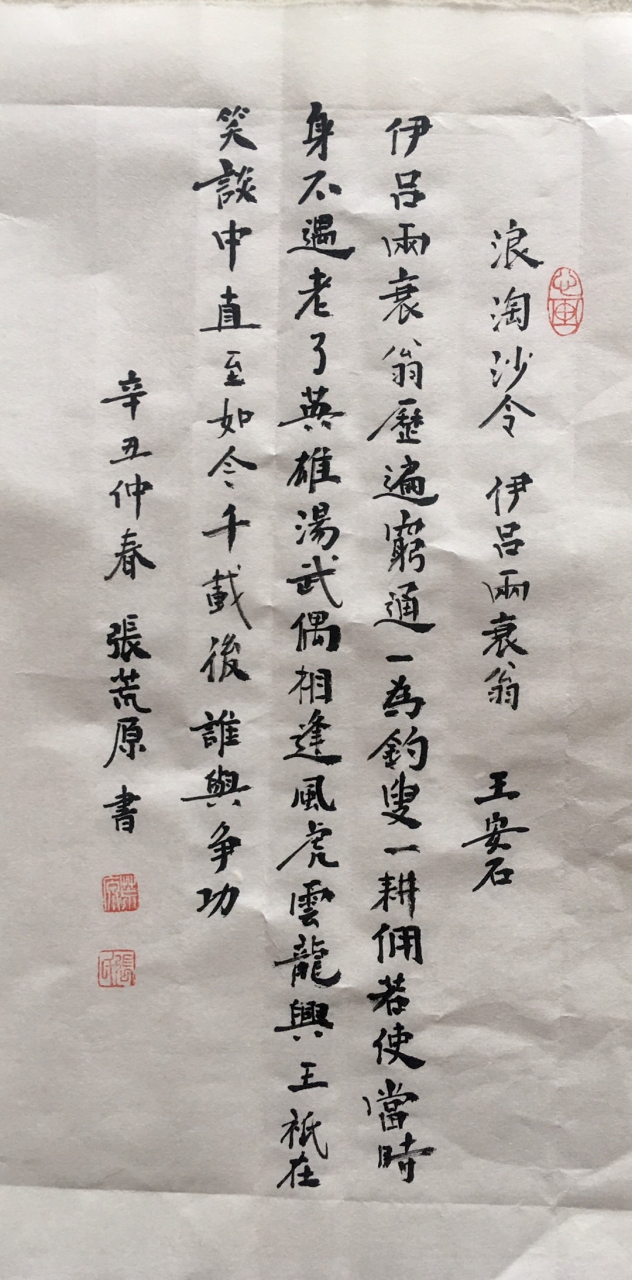 浪淘沙令 伊吕兩衰翁 王安石
伊吕兩衰翁歷遍窮通一為釣叟一耕佣若使當時
身不遇老了英雄湯武偶相逢風虎雲龍興王祇在
笑談中直至如今千載後誰與争功
辛丑仲春 張荒原 書